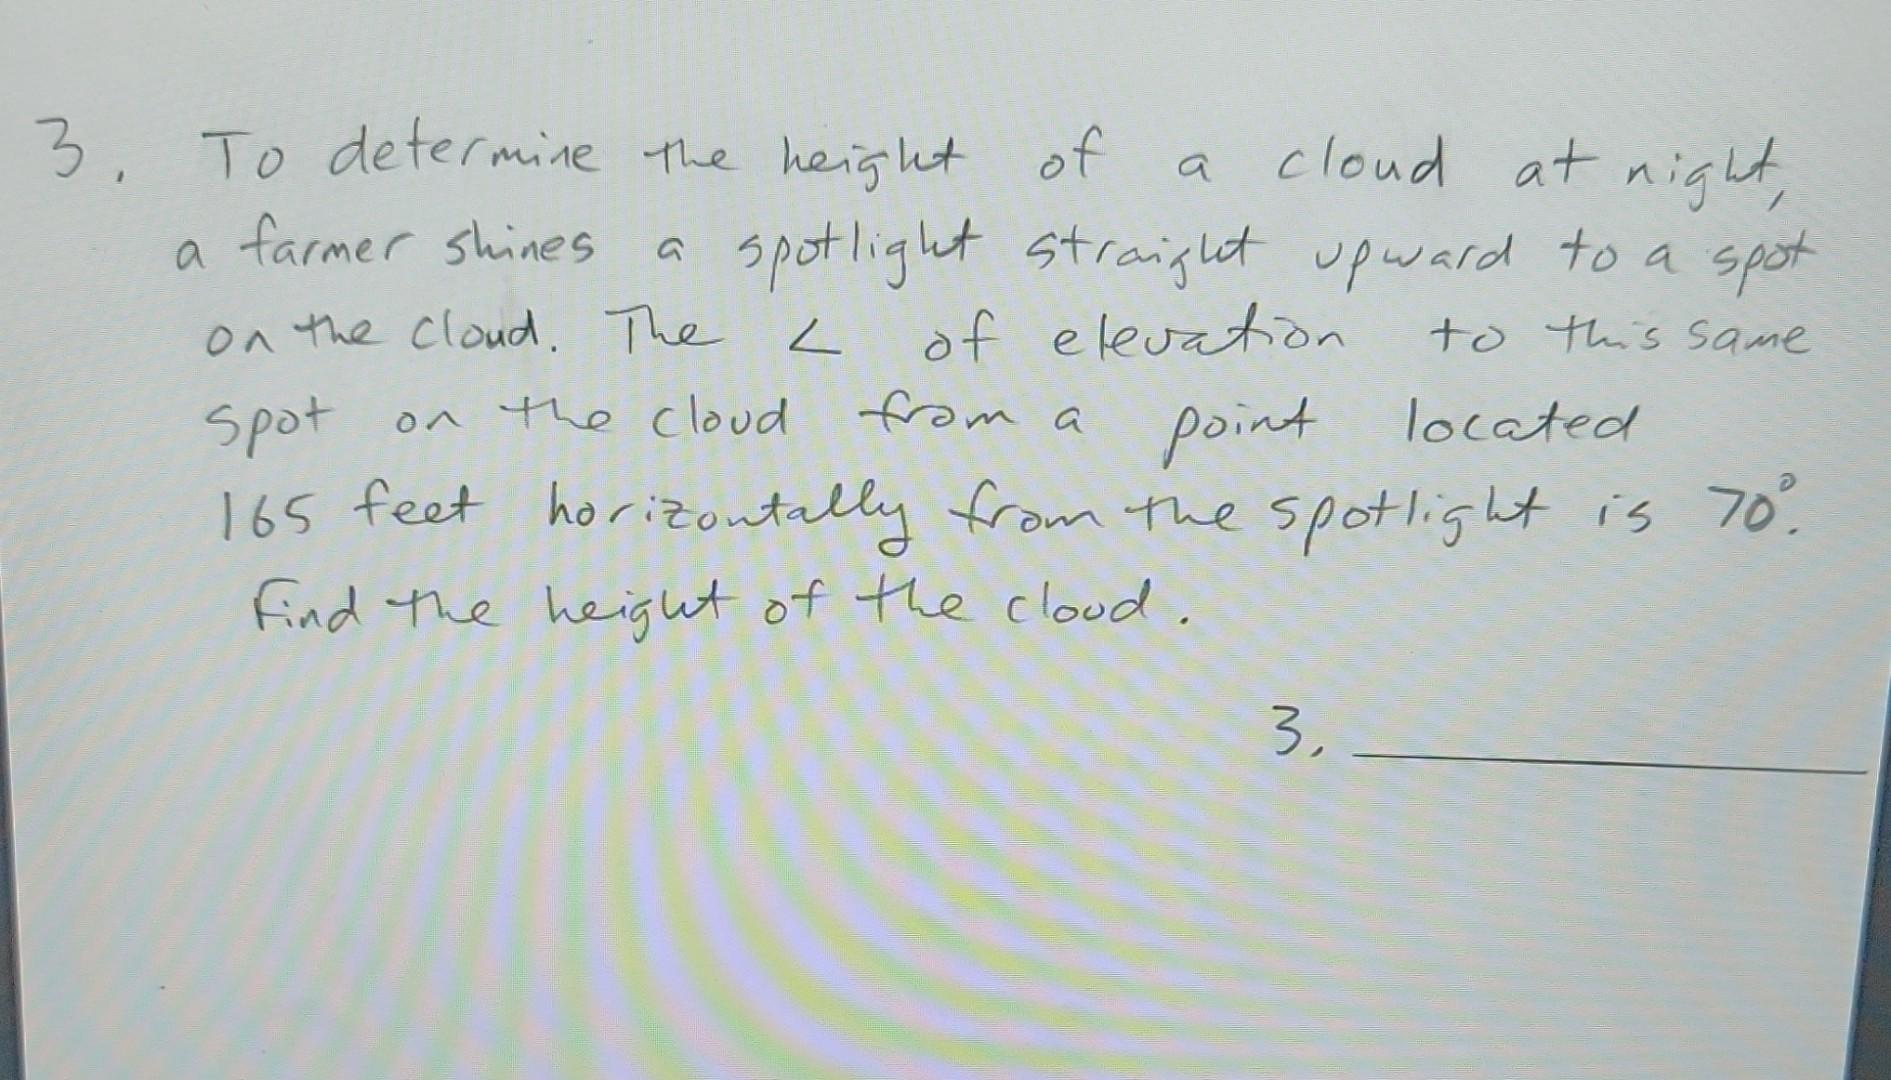 3. To determine the height of a cloud at night,
a farmer shines a spotlight straight upward to a spot
on the cloud. The ∠ of elevation to this same
spot on the cloud from a point located
165 feet horizontally from the spotlight is 70°.
Find the height of the cloud.
3. ________